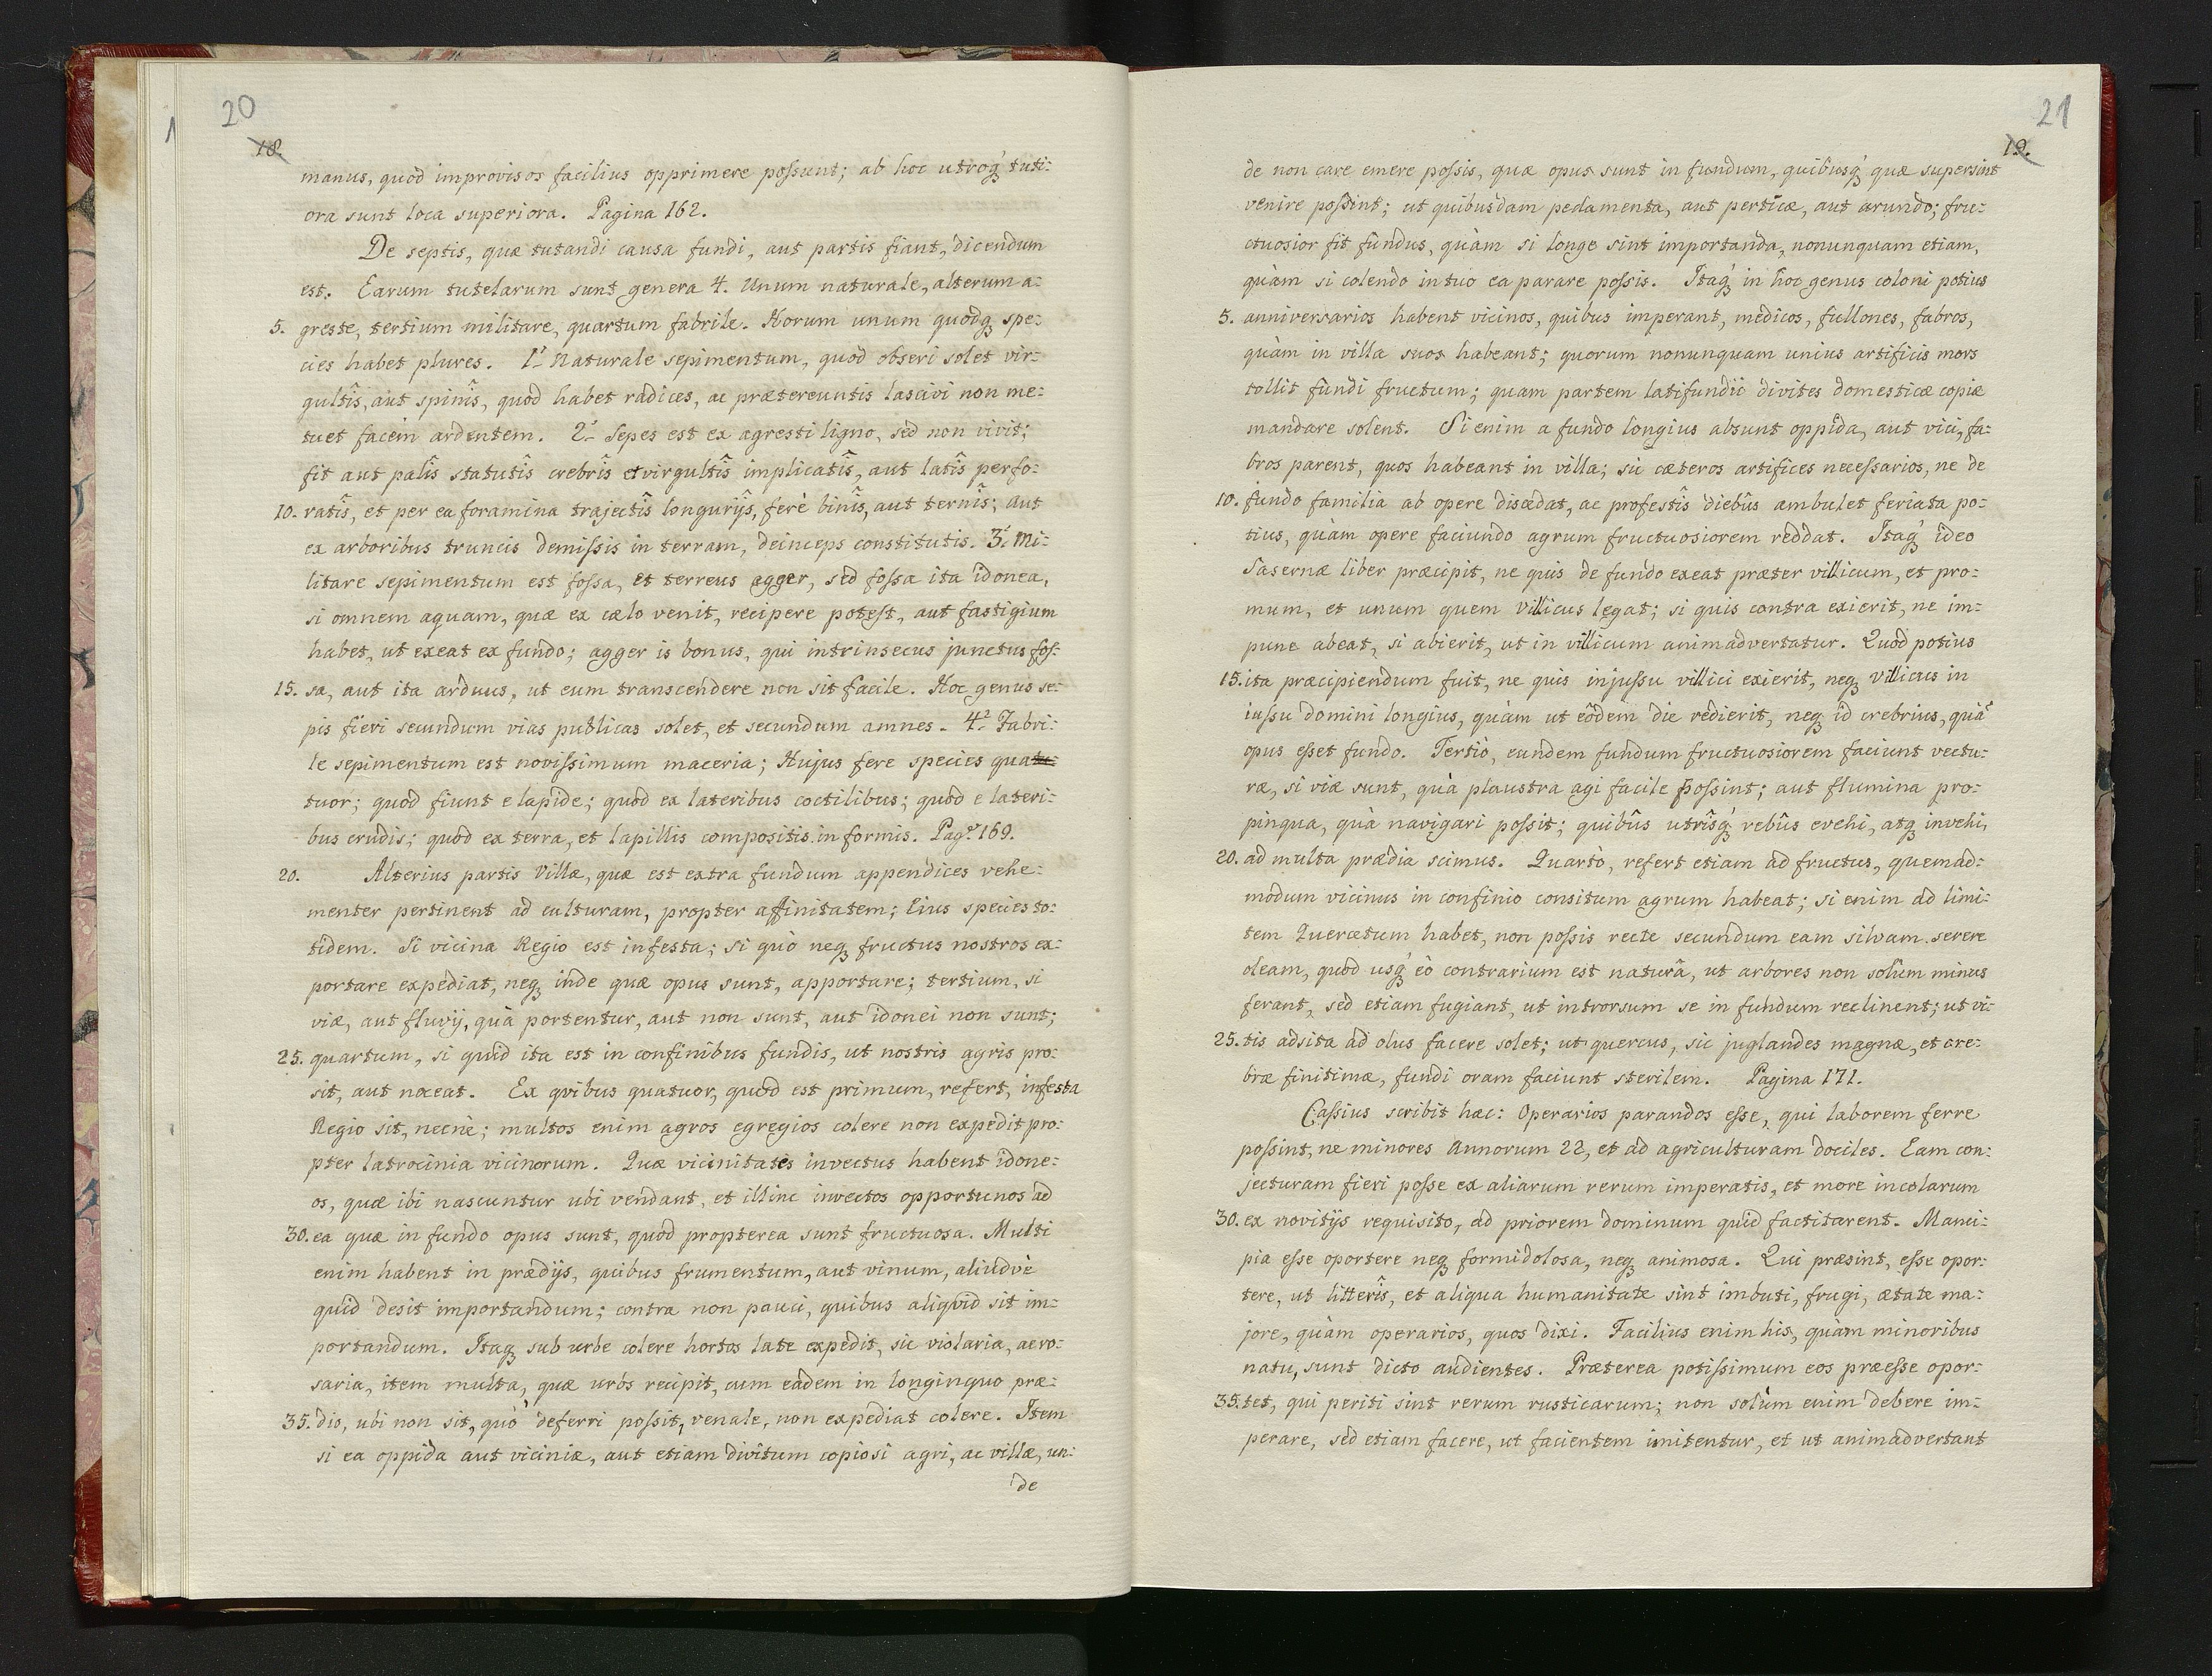 20
18.
manus, quod improvisos facilius opprimere possunt; ab hoc utroq́; tuti-
ora sunt loca superiora. Pagina 162.
De septis, quæ tutandi causa fundi, aut partis fiant, dicendum
est. Earum tutelarum sunt genera 4. Unum naturale, alterum a-
5. greste, tertium militare, quartum fabrile. Horum unum quodq; spe-
cies habet plures. 1.ͬ Naturale sepimentum, quod obseri solet vir-
gultîs, aut spinîs, quod habet radices, ac prætereuntis lascivi non me-
tuet facem ardentem. 2.ͬ Sepes est ex agresti ligno, sed non vivit;
fit aut palîs statutîs crebrîs et virgultîs implicatîs, aut latîs perfo-
10. ratîs, et per ea foramina trajectîs longurijs, ferè binîs, aut ternîs; aut
ex arboribus truncis demissis in terram, deinceps constitutis. 3.ͬ Mi-
litare sepimentum est fossa, et terreus agger, sed fossa ita idonea,
si omnem aquam, quæ ex cælo venit, recipere potest, aut fastigium
habet, ut exeat ex fundo; agger is bonus, qui intrinsecus junctus fos-
15. sa, aut ita arduus, ut eum transcendere non sit facile. Hoc genus se-
pis fieri secundum vias publicas solet, et secundum amnes. 4.ͬ Fabri-
le sepimentum est novissimum maceria; Hujus fere species qua
tuor; quod fiunt e lapide; quod ex lateribus coctilibus; quod e lateri-
bus crudis; quod ex terra, et lapillis compositis in formis. Pag. 169.
20. Alterius partis Villæ, quæ est extra fundum appendices vehe-
menter pertinent ad culturam, propter affinitatem; Eius species to-
tidem. Si vicina Regio est infesta; si quò neq; fructus nostros ex-
portare expediat, neq; inde quæ opus sunt, apportare; tertium, si
viæ, aut fluvij, quà portentur, aut non sunt, aut idonei non sunt;
25. quartum, si quid ita est in confinibus fundis, ut nostris agris pro-
sit, aut noceat. Ex qvibus quatuor, quod est primum, refert, infesta
Regio sit, necnè; multos enim agros egregios colere non expedit pro-
pter latrocinia vicinorum. Quæ vicinitates invectus habent idone-
os, quæ ibi nascuntur ubi vendant, et illinc invectos opportunos ad
30. ea quæ in fundo opus sunt, quod propterea sunt fructuosa. Multi
enim habent in prædijs, quibus frumentum, aut vinum, aliudvè
quid desit importandum; contra non pauci, quibus aliqvid sit im-
portandum. Itaq; sub urbe colere hortos late expedit, sic violaria, ac ro-
saria, item multa, quæ urbs recipit, cum eadem in longinquo præ-
35. dio, ubi non sit, quò deferri possit, venale, non expediat colere. Item
si ea oppida aut viciniæ, aut etiam divitum copiosi agri, ac villæ, un-
de
21
19.
de non care emere possis, quæ opus sunt in fundum, quibusq́; quæ supersint
venire possint; ut quibusdam pedamenta, aut perticæ, aut arundo; fru-
ctuosior fit fundus, quàm si longe sint importanda, nonunquam etiam,
quàm si colendo in tuo ea parare possis. Itaq́; in hoc genus coloni potius
5. anniversarios habent vicinos, quibus imperant, medicos, fullones, fabros,
quàm in villa suos habeant; quorum nonunquam unius artificis mors
tollit fundi fructum; quam partem latifundii divites domesticæ copiæ
mandare solent. Si enim a fundo longius absunt oppida, aut vici, fa-
bros parent, quos habeant in villa; sic cæteros artifices necessarios, ne de
10. fundo familia ab opere discedat, ac profestîs diebûs ambulet feriata po-
tius, quàm opere faciundo agrum fructuosiorem reddat. Itaq́; ideo
Sasernæ liber præcipit, ne quis de fundo exeat præter villicum, et pro-
mum, et unum quem Villicus legat; si quis contra exierit, ne im-
pune abeat, si abierit, ut in villicum animadvertatur. Quod potius
15. ita præcipiendum fuit, ne quis injussu villici exierit, neq; Villicus in
iussu domini longius, quàm ut eôdem die redierit, neq; id crebrius, quā
opus esset fundo. Tertiò, eundem fundum fructuosiorem faciunt vectu-
ræ, si viæ sunt, quà plaustra agi facile possint; aut flumina pro-
pinqua, quà navigari possit; quibûs utrîsq́; rebûs evehi, atq; invehi,
20. ad multa prædia scimus. Quartò, refert etiam ad fructus, quemad-
modum vicinus in confinio consitum agrum habeat; si enim ad limi-
tem Quercetum habet, non possis recte secundum eam silvam serere
oleam, quod usq́; eò contrarium est naturâ, ut arbores non solùm minus
ferant, sed etiam fugiant, ut introrsum se in fundum reclinent; ut vi-
25. tis adsita ad olus facere solet; ut quercus, sic juglandes magnæ, et cre-
bræ finitimæ, fundi oram faciunt sterilem. Pagina 171.
Cassius scribit hæc: Operarios parandos esse, qui laborem ferre
possint, ne minores Annorum 22, et ad agriculturam dociles. Eam con-
jecturam fieri posse ex aliarum rerum imperatis, et more incolarum
30. ex novitijs requisito, ad priorem dominum quid factitarent. Manci-
pia esse oportere neq; formidolosa, neq; animosa. Qui præsint, esse opor-
tere, ut litterîs, et aliqua humanitate sint imbuti, frugi, ætate ma-
jore, quàm operarios, quos dixi. Facilius enim his, quàm minoribus
natu, sunt dicto audientes. Præterea potissimum eos præesse opor-
35. tet, qui periti sint rerum rusticarum; non solùm enim debere im-
perare, sed etiam facere, ut facientem imitentur, et ut animadvertant